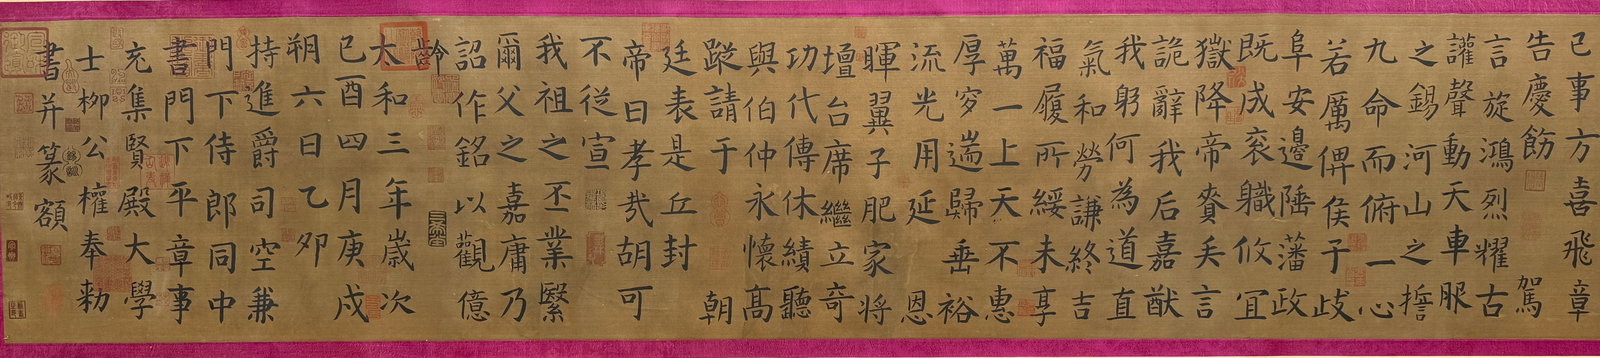 已事方喜飛章
告慶飭 駕
言旋鴻烈耀古
讙聲動天車服
之錫河山之誓
九命而俯一心
若厲俾侯于歧
阜安邊陲藩政
既成袞職攸宜
獄降帝賚矢言
詭辭我后嘉猷
我躬何為道直
氣和勞謙終吉
福履所綏未享
萬一上天不惠
厚穸遄歸垂裕
流光用延 恩
暉翼子肥家將
壇台席繼立奇
功代傳休績聽
與伯仲永懷高
蹤請于 朝
廷表是丘封
帝曰孝哉胡可
不從宣
我祖之丕業緊
爾父之嘉庸乃
詔作銘以觀億
齡
太和三年歲次
己酉四月庚戍
朔六日乙夘
持進爵司空兼
門下侍郎同中
書門下平章事
充集賢殿大學
士柳公權奉勑
書并篆額